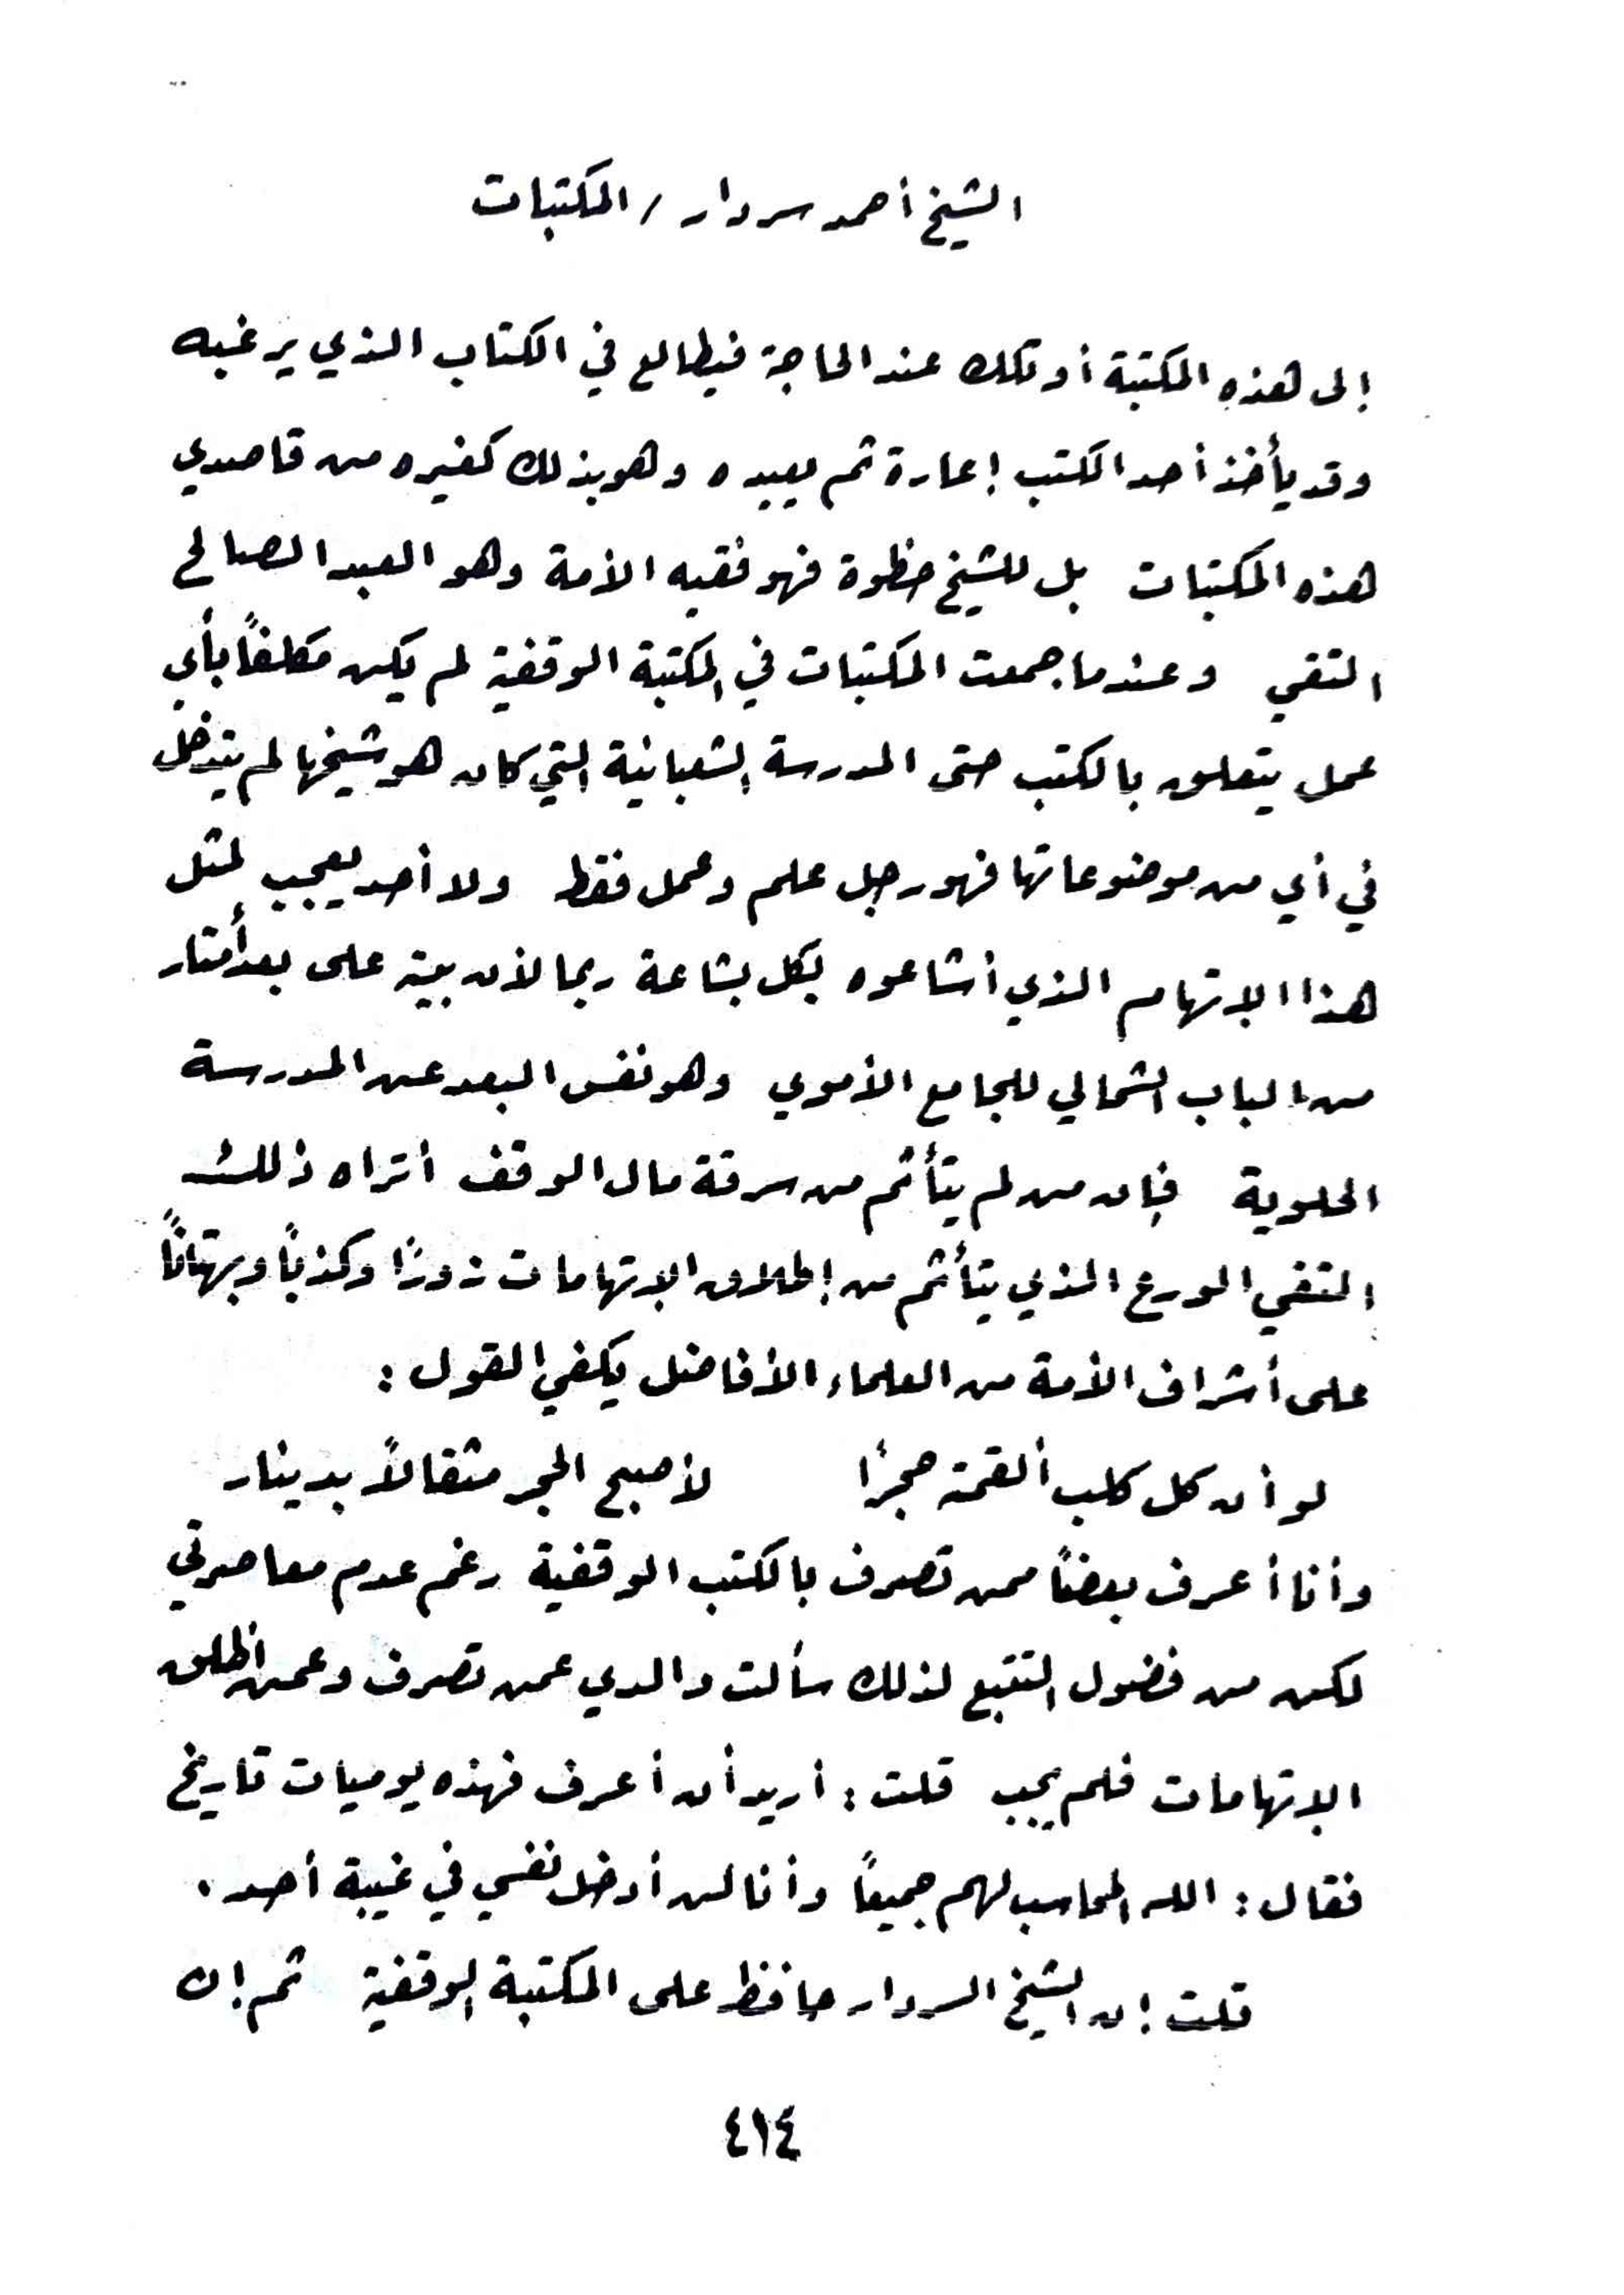 الشيخ أحمد سردار / المكتبات
إلى هذه المكتبة أو تلك عند الحاجة فيطالع في الكتاب الذي يرغبه
وقد يأخذ أحد الكتب إعارة ثم يعيده وهو بذلك كغيره من قاصدي
هذه المكتبات بل للشيخ حظوة فهو فقيه الأمة وهو العبد الصالح
التقي وعندما جمعت المكتبات في المكتبة الوقفية لم يكن مكلفاً بأي
عمل يتعلق بالكتب حتى المدرسة الشعبانية التي كان هو شيخها لم يتدخل
في أي من موضوعاتها فهو رجل علم وعمل فقط ولا أحد يعجب لمثل
هذا الإتهام الذي أشاعوه بكل بشاعة ربما لأن بيته على بعد أمتار
من الباب الشمالي للجامع الأموي وهو نفس البعد عن المدرسة
الحلوية فإن من لم يتأثم من سرقة مال الوقف أتراه ذلك
التقي الورع الذي يتأثم من إطلاق الإتهامات زوراً وكذباً وبهتاناً
على أشراف الأمة من العلماء الأفاضل يكفي القول :
لو أن كل كلب ألقمته حجراً لأصبح الحجر مثقالاً بدينار
وأنا أعرف بعضاً ممن تصرف بالكتب الوقفية رغم عدم معاصرتي
لكن من فضول التتبع لذلك سألت والدي عمن تصرف وعمن أطلق
الإتهامات فلم يجب قلت : أريد أن أعرف فهذه يوميات تاريخ
فقال : الله المحاسب لهم جميعاً وأنا لن أدخل نفسي في غيبة أحد .
قلت إن الشيخ السردار حافظ على المكتبة الوقفية ثم إن
٤١٤